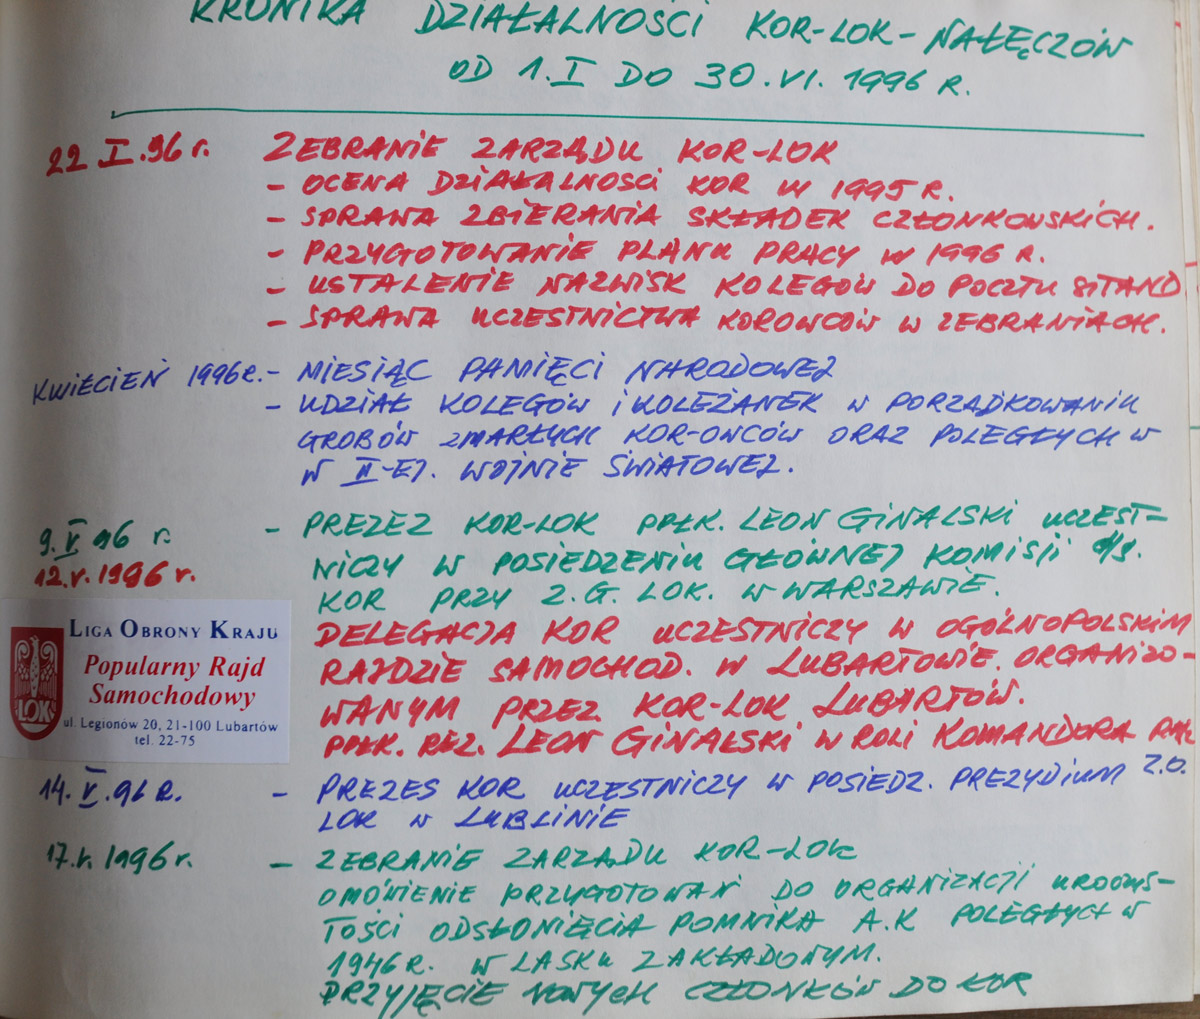 KRONIKA DZIAŁALNOŚCI KOR-LOK-NAŁĘCZÓW
OD 1.I DO 30.VI.1996 R.
22 I.96 r. ZEBRANIE ZARZĄDU KOR-LOK
- OCENA DZIAŁALNOSCI KOR W 1995 R.
- SPRAWA ZBIERANIA SKŁADEK CZŁONKOWSKICH.
- PRZYGOTOWANIE PLANU PRACY W 1996 R.
- USTALENIE NAZWISK KOLEGÓW DO POCZTU SZTAND
- SPRAWA UCZESTNICTWA KOROWCÓW W ZEBRANIACH.
KWIECIEŃ 1996R. - MIESIĄC PAMIĘCI NARODOWEJ
- UDZIAŁ KOLEGÓW I KOLEŻANEK W PORZĄDKOWANIU
GROBÓW ZMARŁYCH KOR-OWCÓW ORAZ POLEGŁYCH W
W II-EJ. WOJNIE ŚWIATOWEJ.
9.V 96 r. - PREZEZ KOR-LOK PPŁK. LEON GINALSKI UCZEST-
NICZY W POSIEDZENIU GŁÓWNEJ KOMISJI d/s.
12.V.1996 r.
KOR PRZY Z.G. LOK. W WARSZAWIE.
DELEGACJA KOR UCZESTNICZY W OGÓLNOPOLSKIM
RAJDZIE SAMOCHOD. W LUBARTOWIE. ORGANIZO-
WANYM PRZEZ KOR-LOK LUBARTÓW.
PPŁK. REZ. LEON GINALSKI W ROLI KOMANDORA
LIGA OBRONY KRAJU
Popularny Rajd
Samochodowy
LOK
ul. Legionów 20, 21-100 Lubartów
tel. 22-75
14.V.96 R. - PREZES KOR UCZESTNICZY W POSIEDZ. PREZYDIUM Z.O.
LOK W LUBLINIE
17.V.1996 r. - ZEBRANIE ZARZĄDU KOR-LOK
OMÓWIENIE PRZYGOTOWAŃ DO ORGANIZACJI UROCZYS-
TOŚCI ODSŁONIĘCIA POMNIKA A.K POLEGŁYCH W
1946 R. W LASKU ZAKŁADOWYM.
PRZYJĘCIE NOWYCH CZŁONKÓW DO KOR